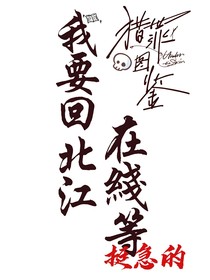 猎冰图鉴
我要回北江
在綫等
挺急的